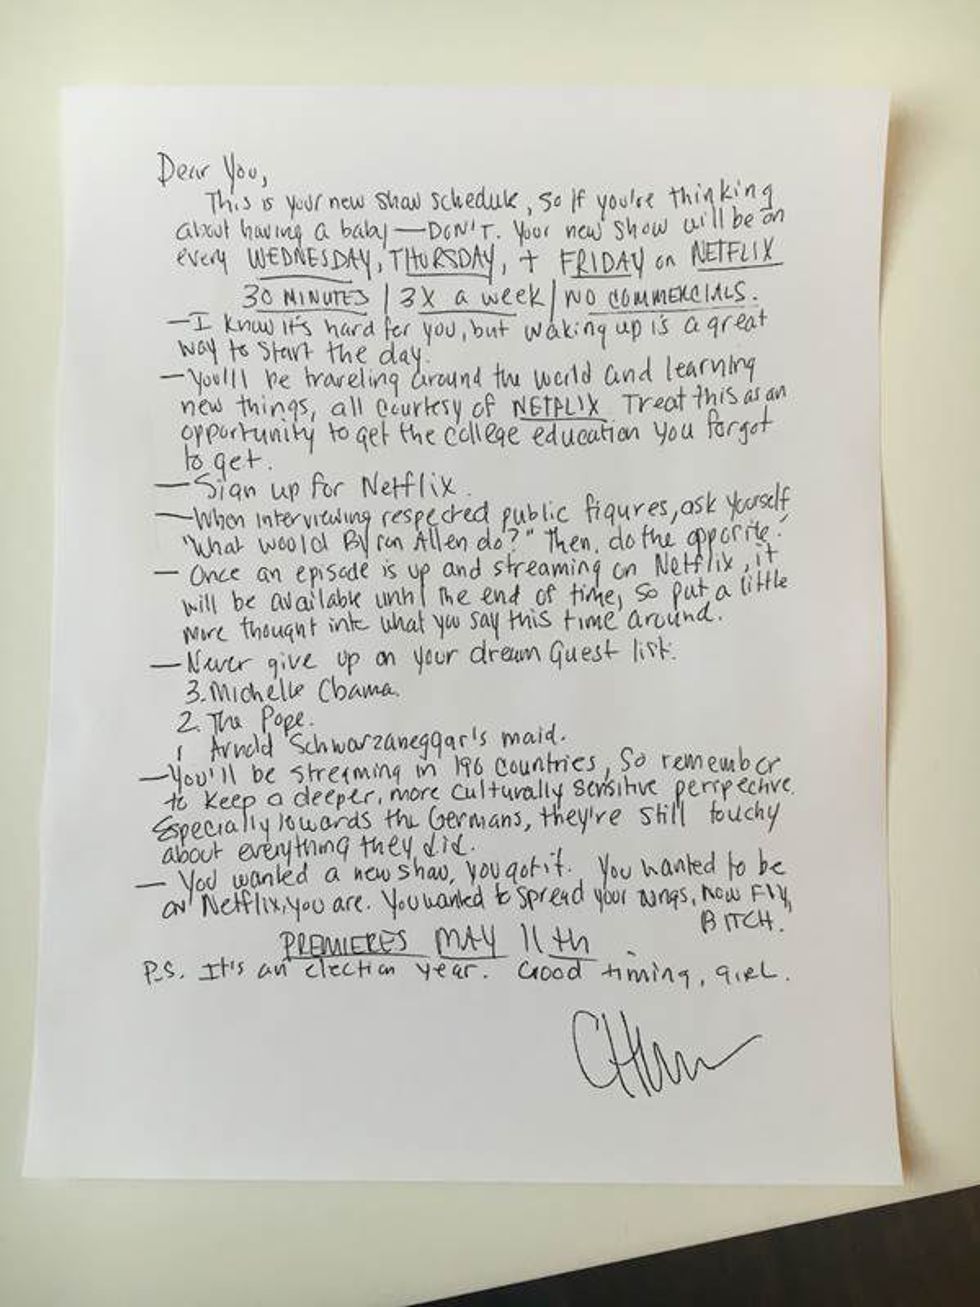 Dear You,
This is your new show schedule, so if you're thinking
about having a baby — DON'T. Your new show will be on
every WEDNESDAY, THURSDAY, + FRIDAY on NETFLIX
30 MINUTES | 3X a week | NO COMMERCIALS.
— I know it's hard for you, but waking up is a great
way to start the day.
— You'll be traveling around the world and learning
new things, all courtesy of NETFLIX Treat this as an
opportunity to get the college education you forgot
to get.
— Sign up for Netflix.
— When interviewing respected public figures, ask yourself
"What would Byron Allen do?" Then, do the opposite.
— Once an episode is up and streaming on Netflix, it
will be available until the end of time, so put a little
more thought into what you say this time around.
— Never give up on your dream Guest list.
3. Michelle Obama.
2. The Pope.
1 Arnold Schwarzaneggar's maid.
— You'll be streaming in 190 countries, so remember
to keep a deeper, more culturally sensitive perspective.
Especially towards the Germans, they're still touchy
about everything they did.
— You wanted a new show, you got it. You wanted to be
on Netflix, you are. You wanted to spread your wings, now FLY,
BITCH.
PREMIERES MAY 11th.
P.S. It's an election year. Good timing, girl.